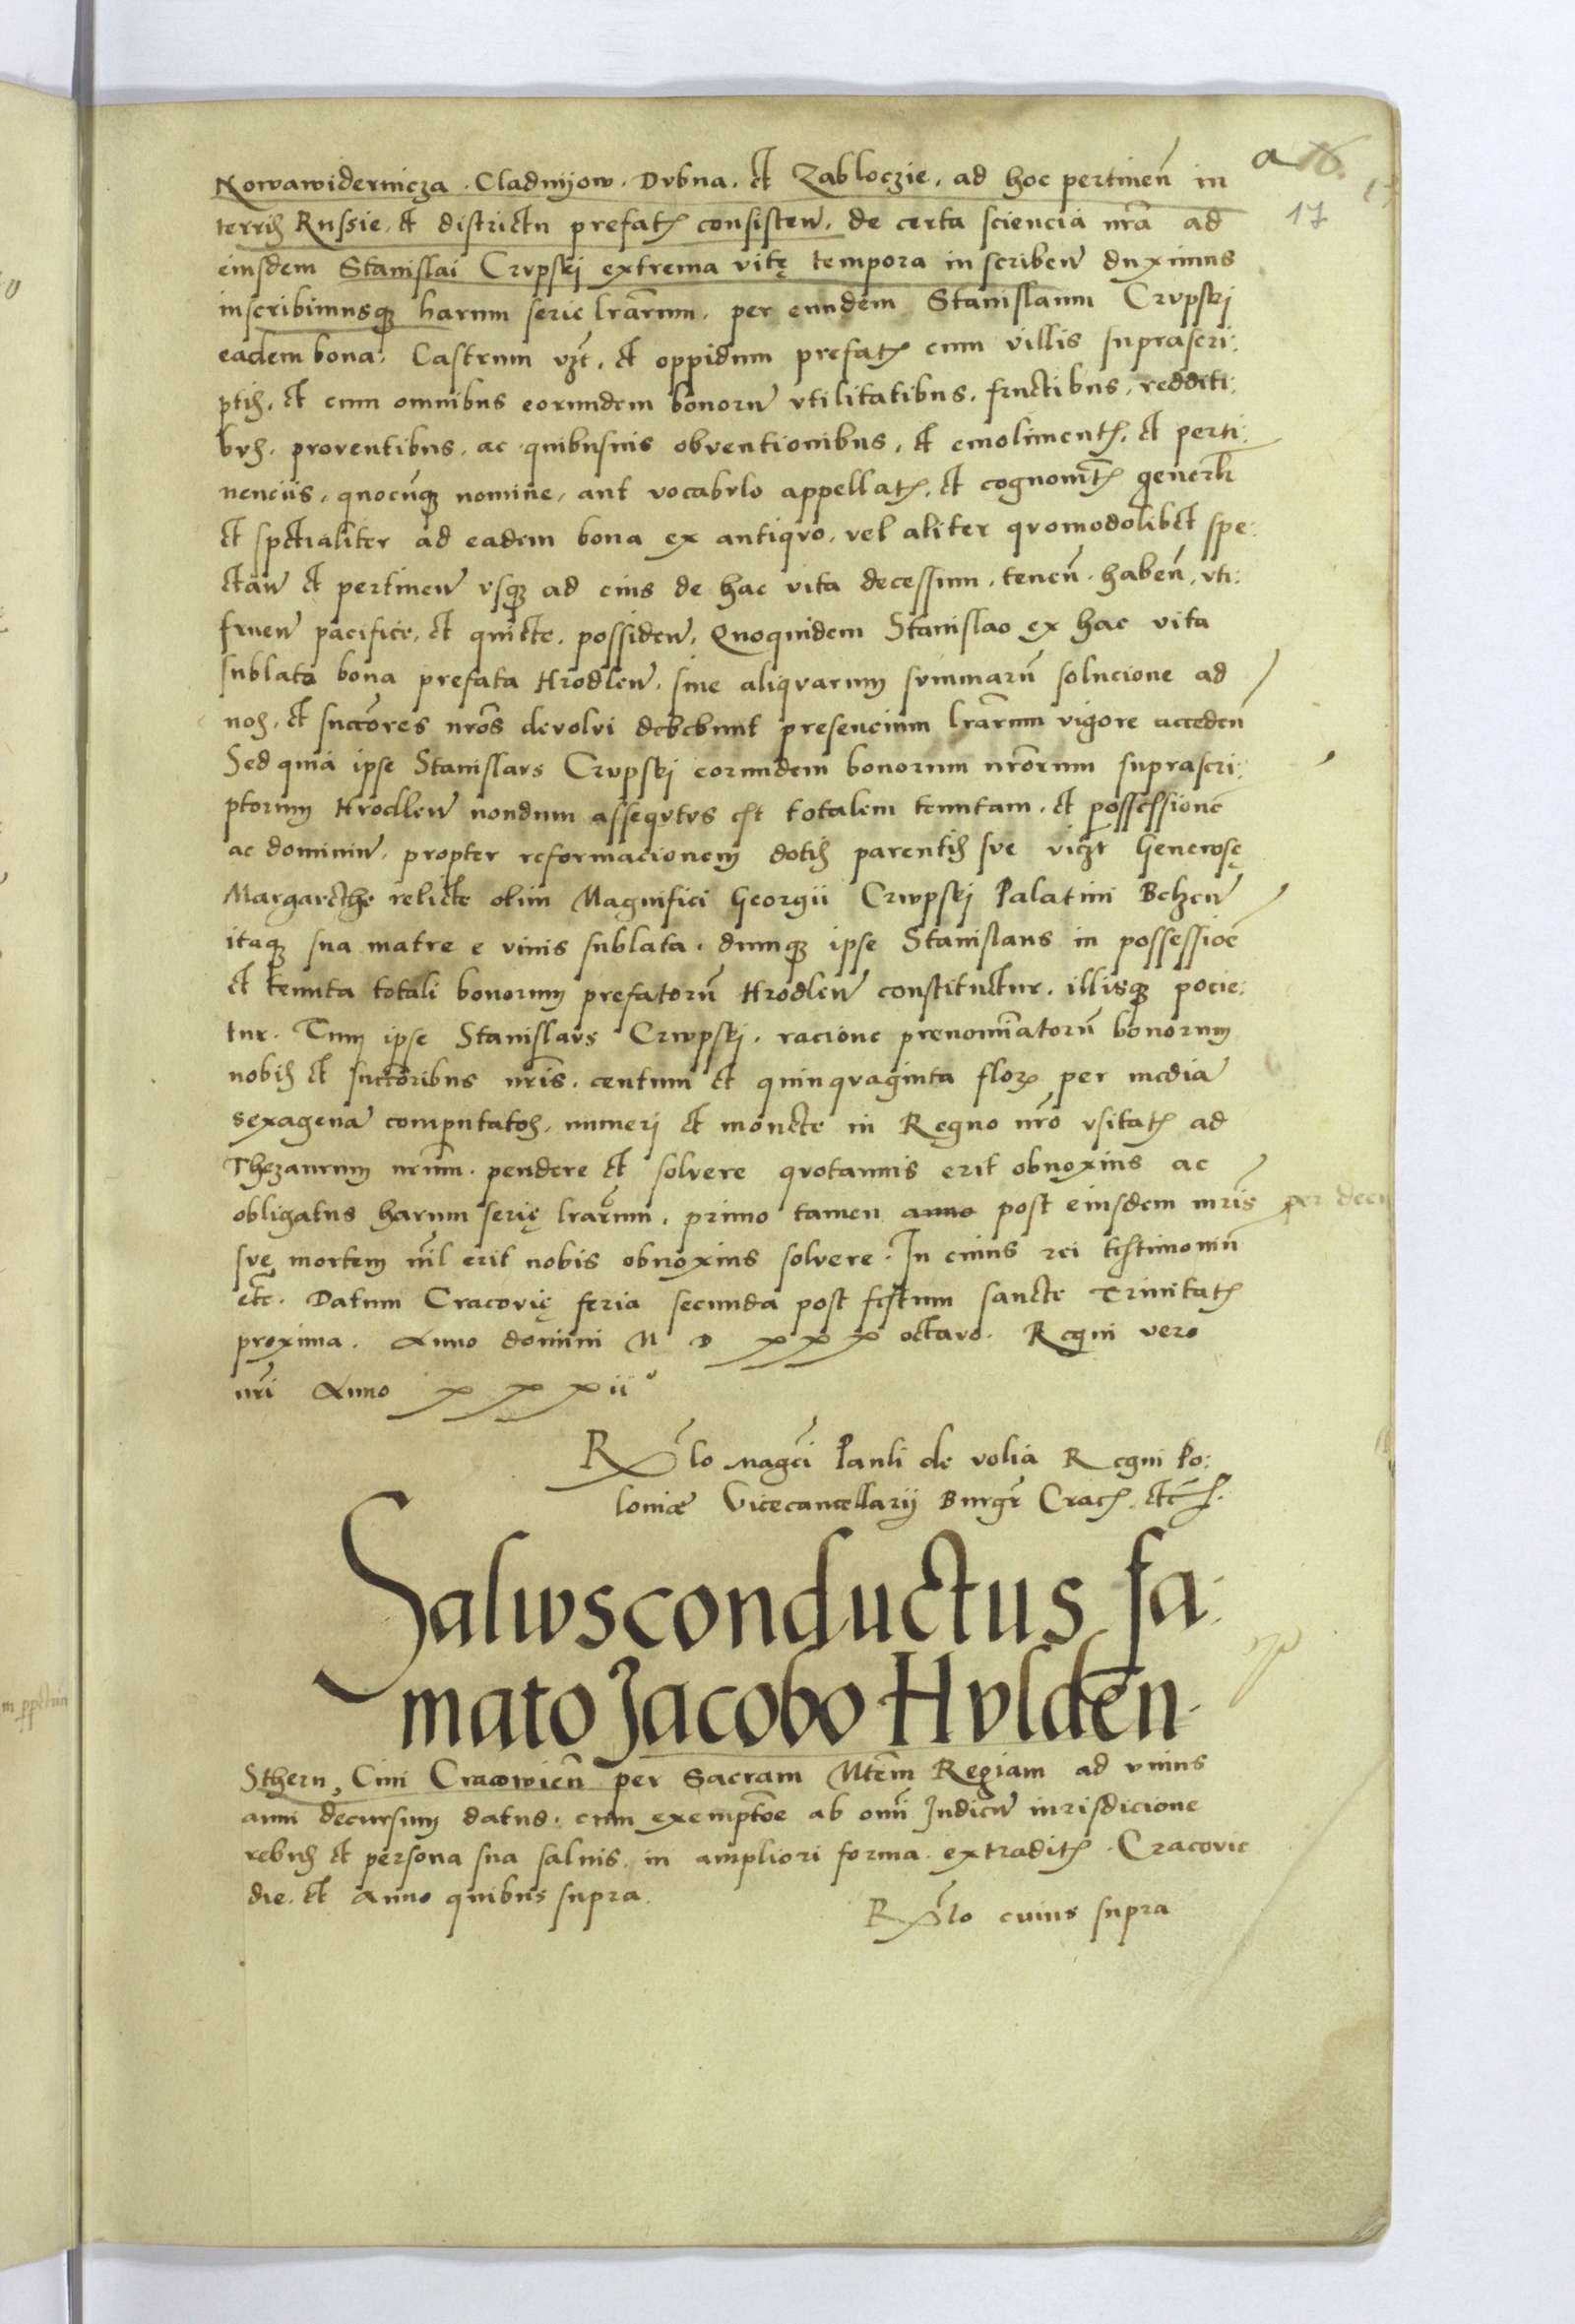 a 16.
17
Nowawidernicza . Cladnijow . Dvbna . et Zabloczie . ad hoc pertineñ in
terris Russie . et districtu prefatis consisteñ . de certa sciencia nr̃a ad
eiusdem Stanislai Crvpskj extrema vitę tempora inscribeñ duximus
inscribimusqȝ harum serie lr̃arum . per eundem Stanislaum Crvpskj
eadem bona . Castrum vȝt . et oppidum prefatis cum villis suprascri:
ptis . et cum omnibus eorundem bonorũ vtilitatibus . fructibus . redditi:
bvs . proventibus . ac quibusuis obventionibus . et emolimentis . et perti:
nenciis . quocũqȝ nomine . aut vocabvlo appellatis . et cognoĩtis generlr
et spetialiter ad eadem bona ex antiqvo . vel aliter qvomodolibet spe:
ctañ et pertineñ vsqȝ ad eius de hac vita decessum . teneñ . habeñ . vti:
frueñ pacifice . et quiete . possideñ . Quoquidem Stanislao ex hac vita
sublato bona prefata Hrodleñ . sine aliqvarum svmmarũ solucione ad
nos . et succ̃ores nr̃os devolvi debebunt presencium lr̃arum vigore accedeñ
Sed quia ipse Stanislavs Crvpskj eorundem bonorum nr̃orum suprascri:
ptorum Hrodleñ nondum asseqvtvs est totalem tenutam . et possessionẽ
ac dominiũ . propter reformacionem dotis parentis sve viczt Generosę
Margarethe relicte olim Magnifici Georgii Crwpskj Palatini Belzeñ
itaqȝ sua matre e viuis sublata . dumqȝ ipse Stanislaus in possessioẽ
et tenuta totali bonorum prefatorũ Hrodleñ constituetur . illisqȝ pocie:
tur . Tum ipse Stanislavs Crwpskj . racione prenoĩatorũ bonorum
nobis et succ̃oribus nr̃is . centum et quinqvaginta flor̃ per mediã
sexagenã computatos . numeri et monete in Regno nr̃o vsitatis ad
Thezaurum nr̃um . pendere et solvere qvotannis erit obnoxius ac
obligatus harum serię lr̃arum . primo tamen anno post eiusdem mr̃is
svę mortem nĩl erit nobis obnoxius solvere . In cuius rei testimoniũ
etc̃ . Datum Cracovię feria secunda post festum sancte Trinitatis
proxima . Anno domini M D xxx octavo . Regni vero
nr̃i Anno xxxii°
R̃lo magc̃i Pauli de volia Regni Po:
loniæ Vicecancellarij Burgr̃ Crac̃ . etc̃ .
Salwsconductus fa:
mato Jacobo Hvlden
Sthern, Ciui Cracowieñ per Sacram Mtem̃ Regiam ad vnius
anni decursum datus . cum exempto͠e ab om̃i Judicũ iurisdicione
rebus et persona sua saluis . in ampliori forma . extraditis . Cracovie
die . et Anno quibus supra .
R̃lo cuius supra